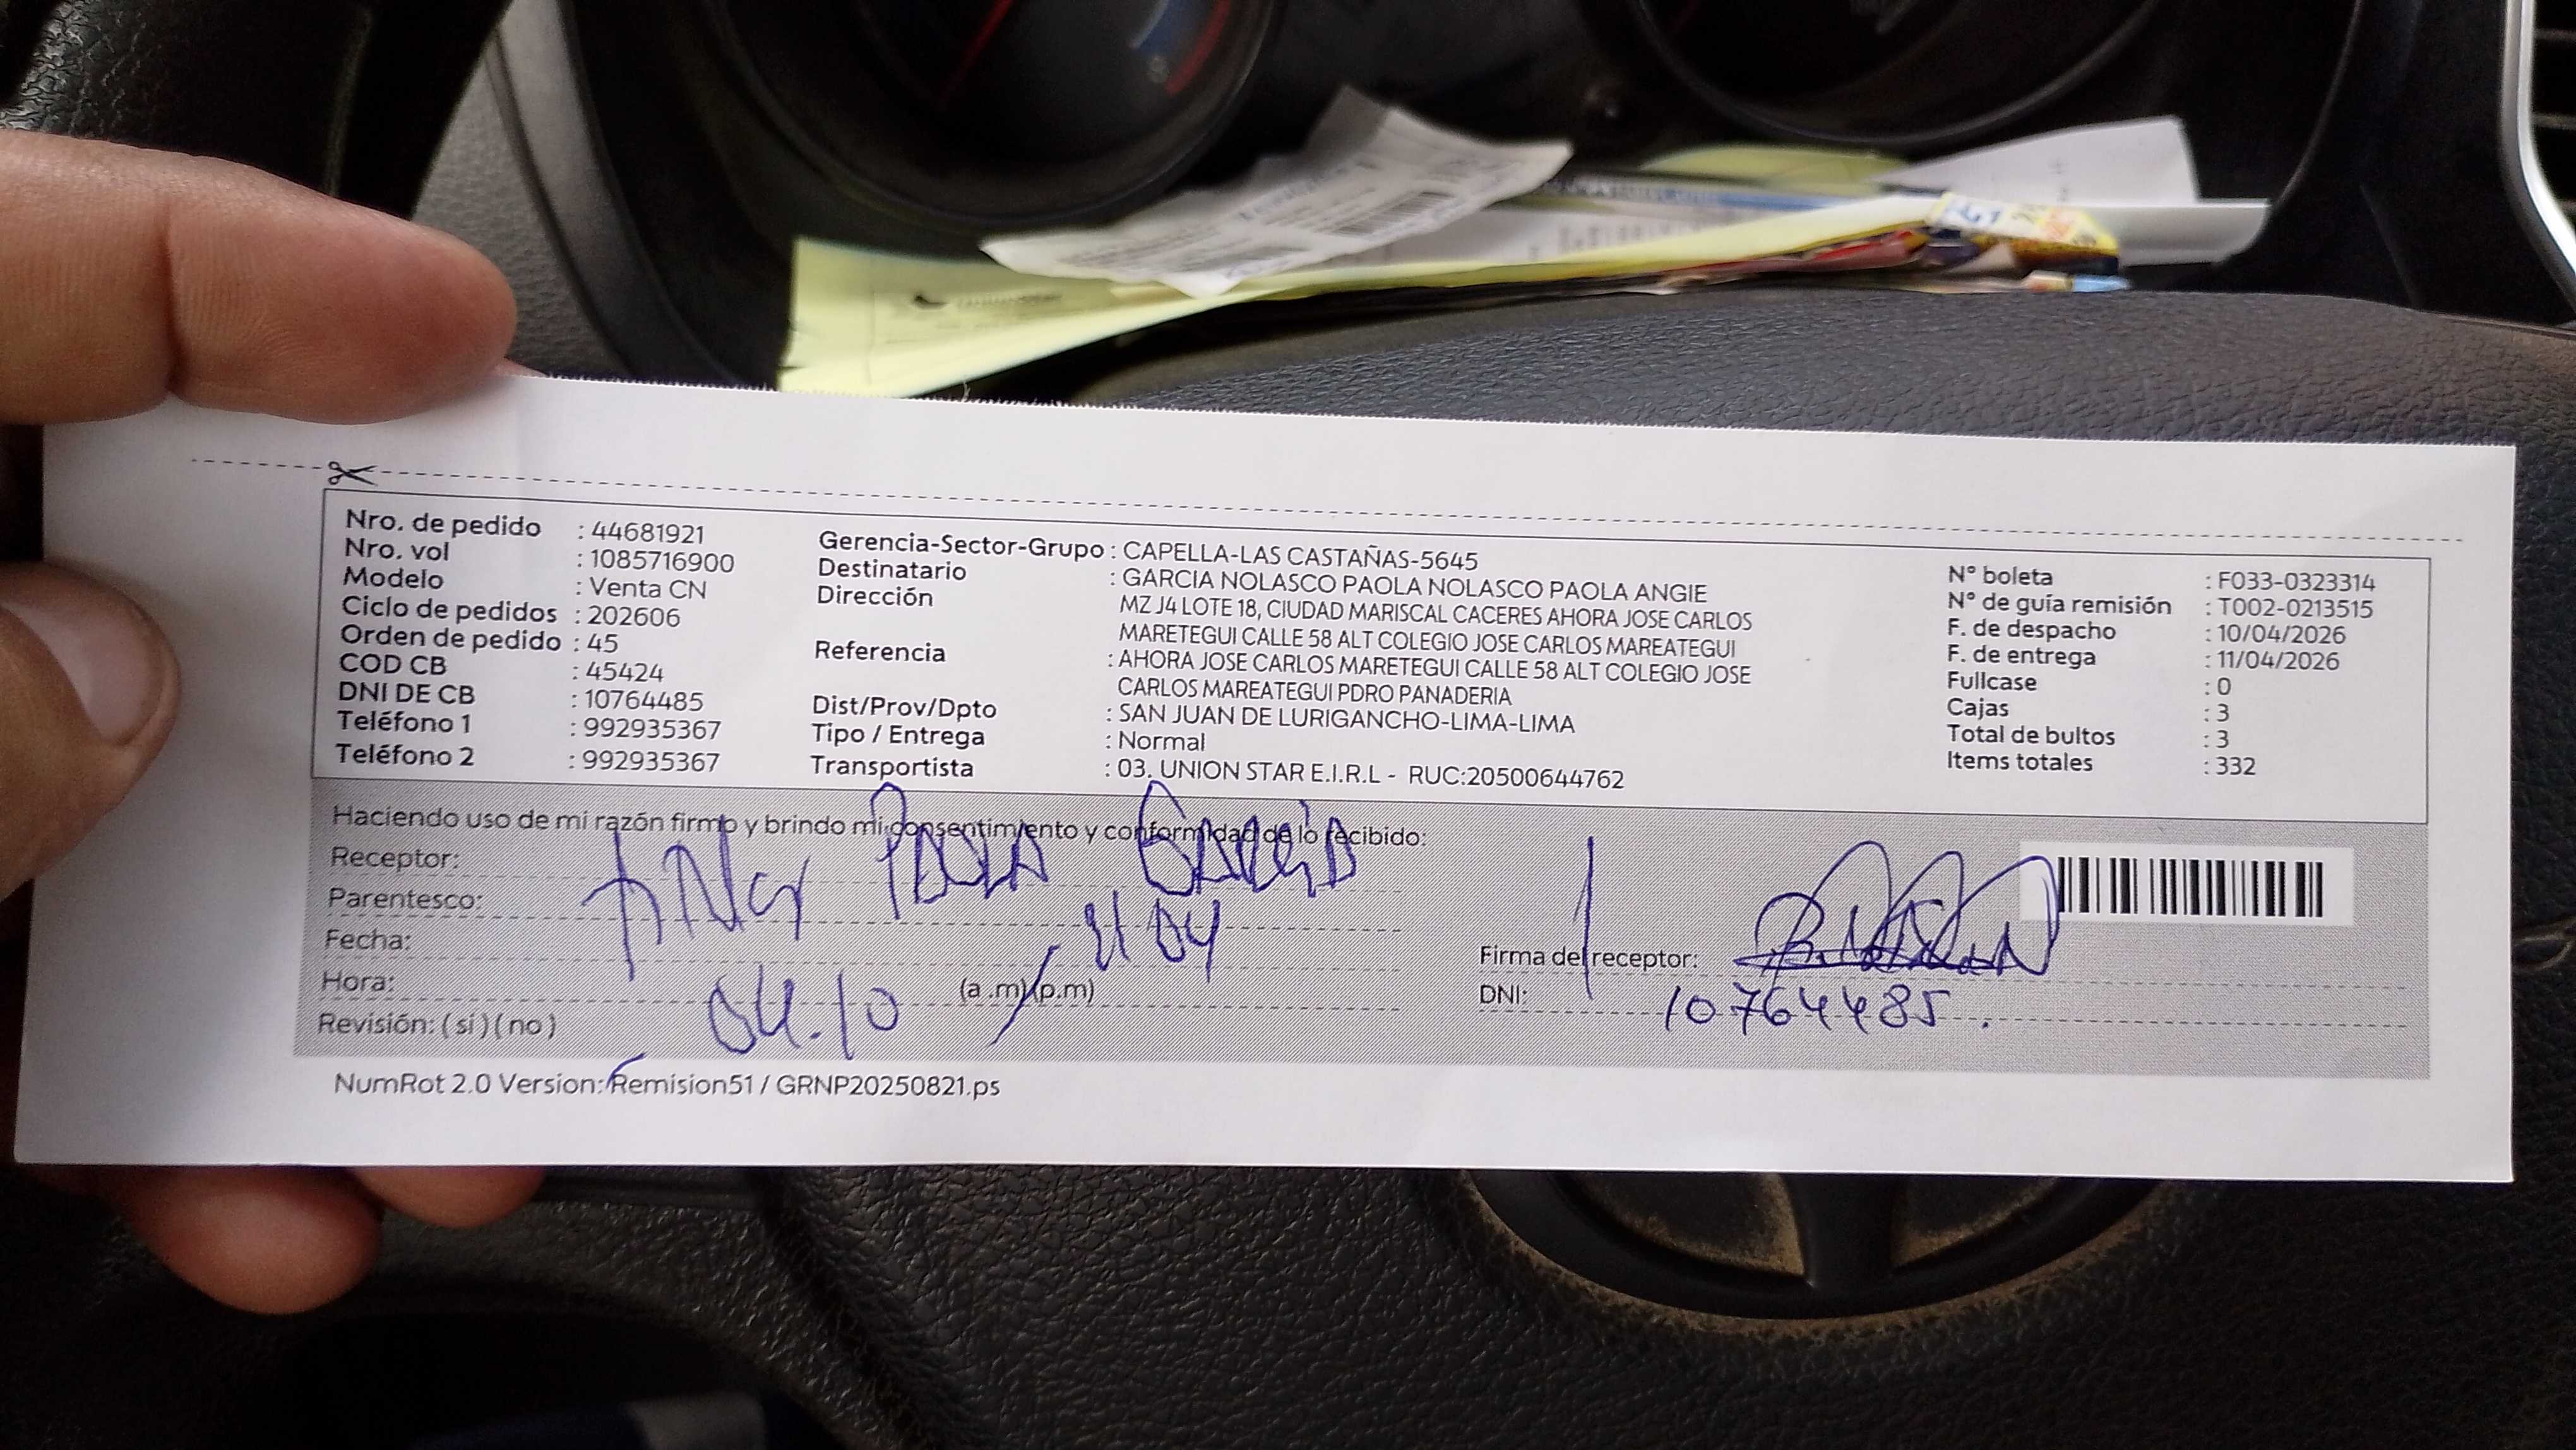 Nro. de pedido : 44681921
Nro. vol : 1085716900
Modelo : Venta CN
Ciclo de pedidos : 202606
Orden de pedido : 45
COD CB : 45424
DNI DE CB : 10764485
Teléfono 1 : 992935367
Teléfono 2 : 992935367
Gerencia-Sector-Grupo : CAPELLA-LAS CASTAÑAS-5645
Destinatario : GARCIA NOLASCO PAOLA NOLASCO PAOLA ANGIE
Dirección MZ J4 LOTE 18, CIUDAD MARISCAL CACERES AHORA JOSE CARLOS
MARETEGUI CALLE 58 ALT COLEGIO JOSE CARLOS MAREATEGUI
Referencia : AHORA JOSE CARLOS MARETEGUI CALLE 58 ALT COLEGIO JOSE
CARLOS MAREATEGUI PDRO PANADERIA
Dist/Prov/Dpto : SAN JUAN DE LURIGANCHO-LIMA-LIMA
Tipo / Entrega : Normal
Transportista : 03. UNION STAR E.I.R.L - RUC:20500644762
N° boleta : F033-0323314
N° de guía remisión : T002-0213515
F. de despacho : 10/04/2026
F. de entrega : 11/04/2026
Fullcase : 0
Cajas : 3
Total de bultos : 3
Items totales : 332
Haciendo uso de mi razón firmo y brindo mi consentimiento y conformidad de lo recibido:
Receptor: Paola Garcia
Parentesco:
Fecha:
Hora: 04.10 (a .m) (p.m)
Revisión: ( si ) ( no )
Firma del receptor:
DNI: 10764485.
NumRot 2.0 Version: Remision51 / GRNP20250821.ps